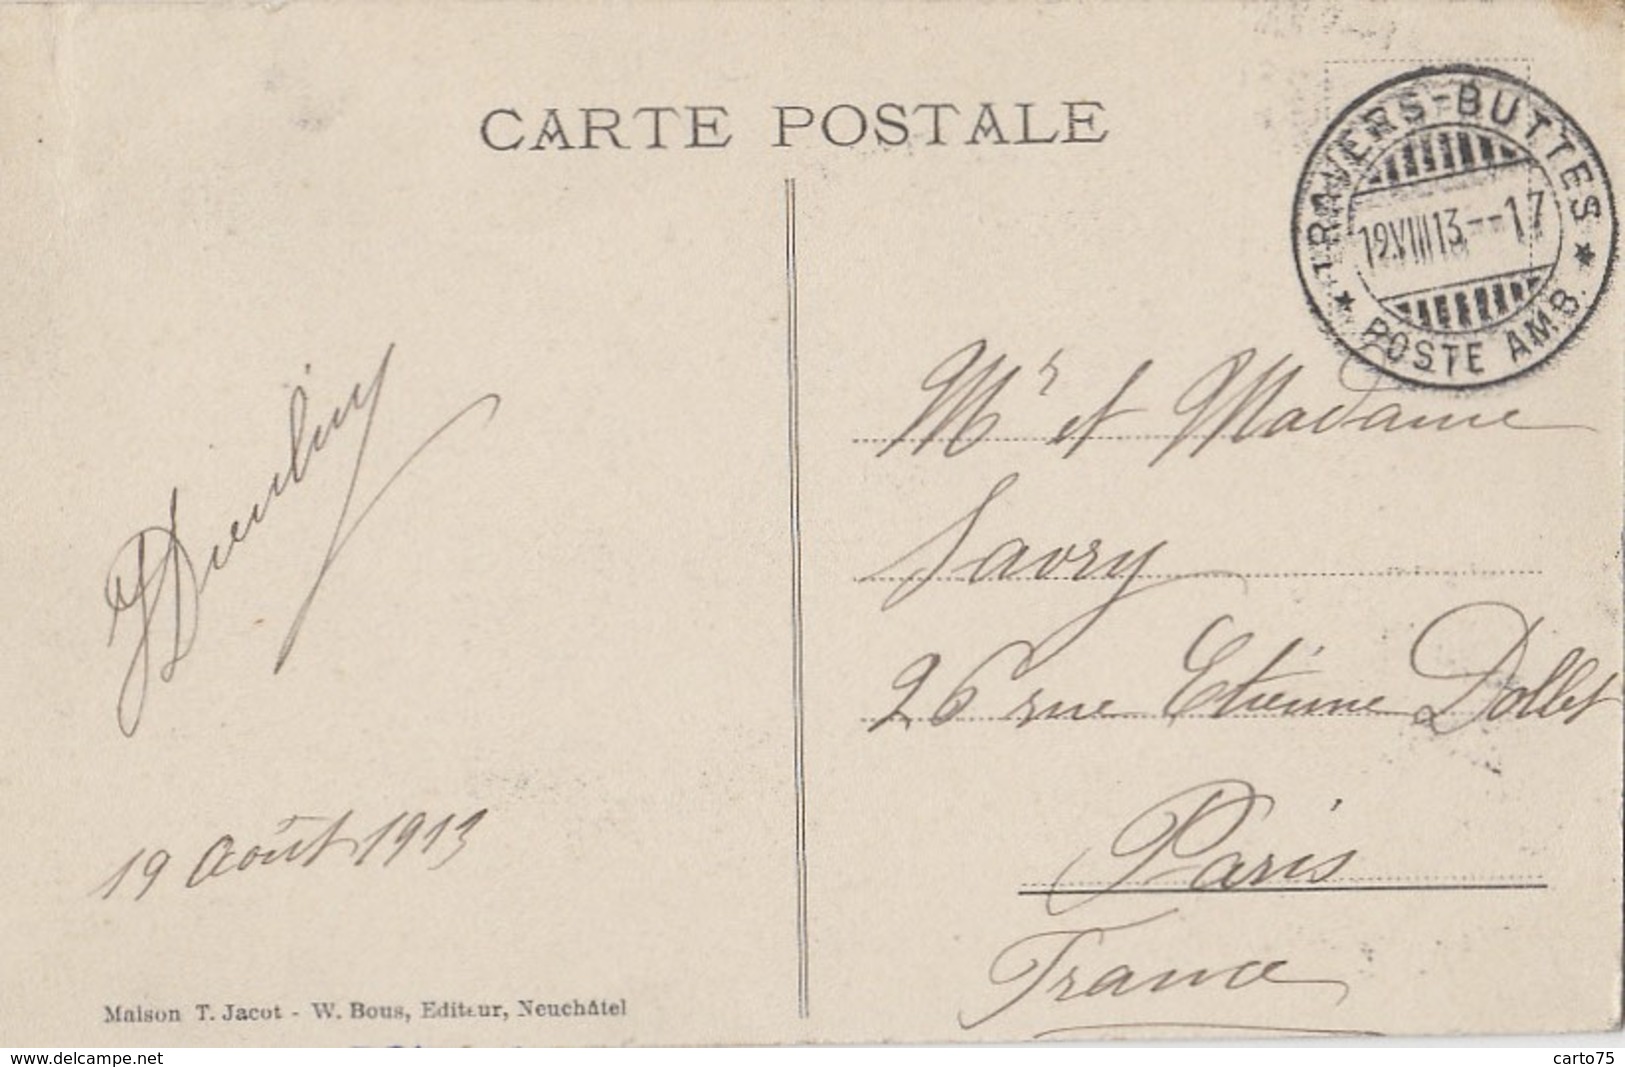 CARTE POSTALE
TRAVERS-BUTTES
19.VIII 13--17
POSTE AMB.
Mr et Madame
Savry
26 rue Etienne Dollet
Paris
France
19 Août 1913
Maison T. Jacot - W. Bous, Editeur, Neuchâtel
www.delcampe.net
carto75